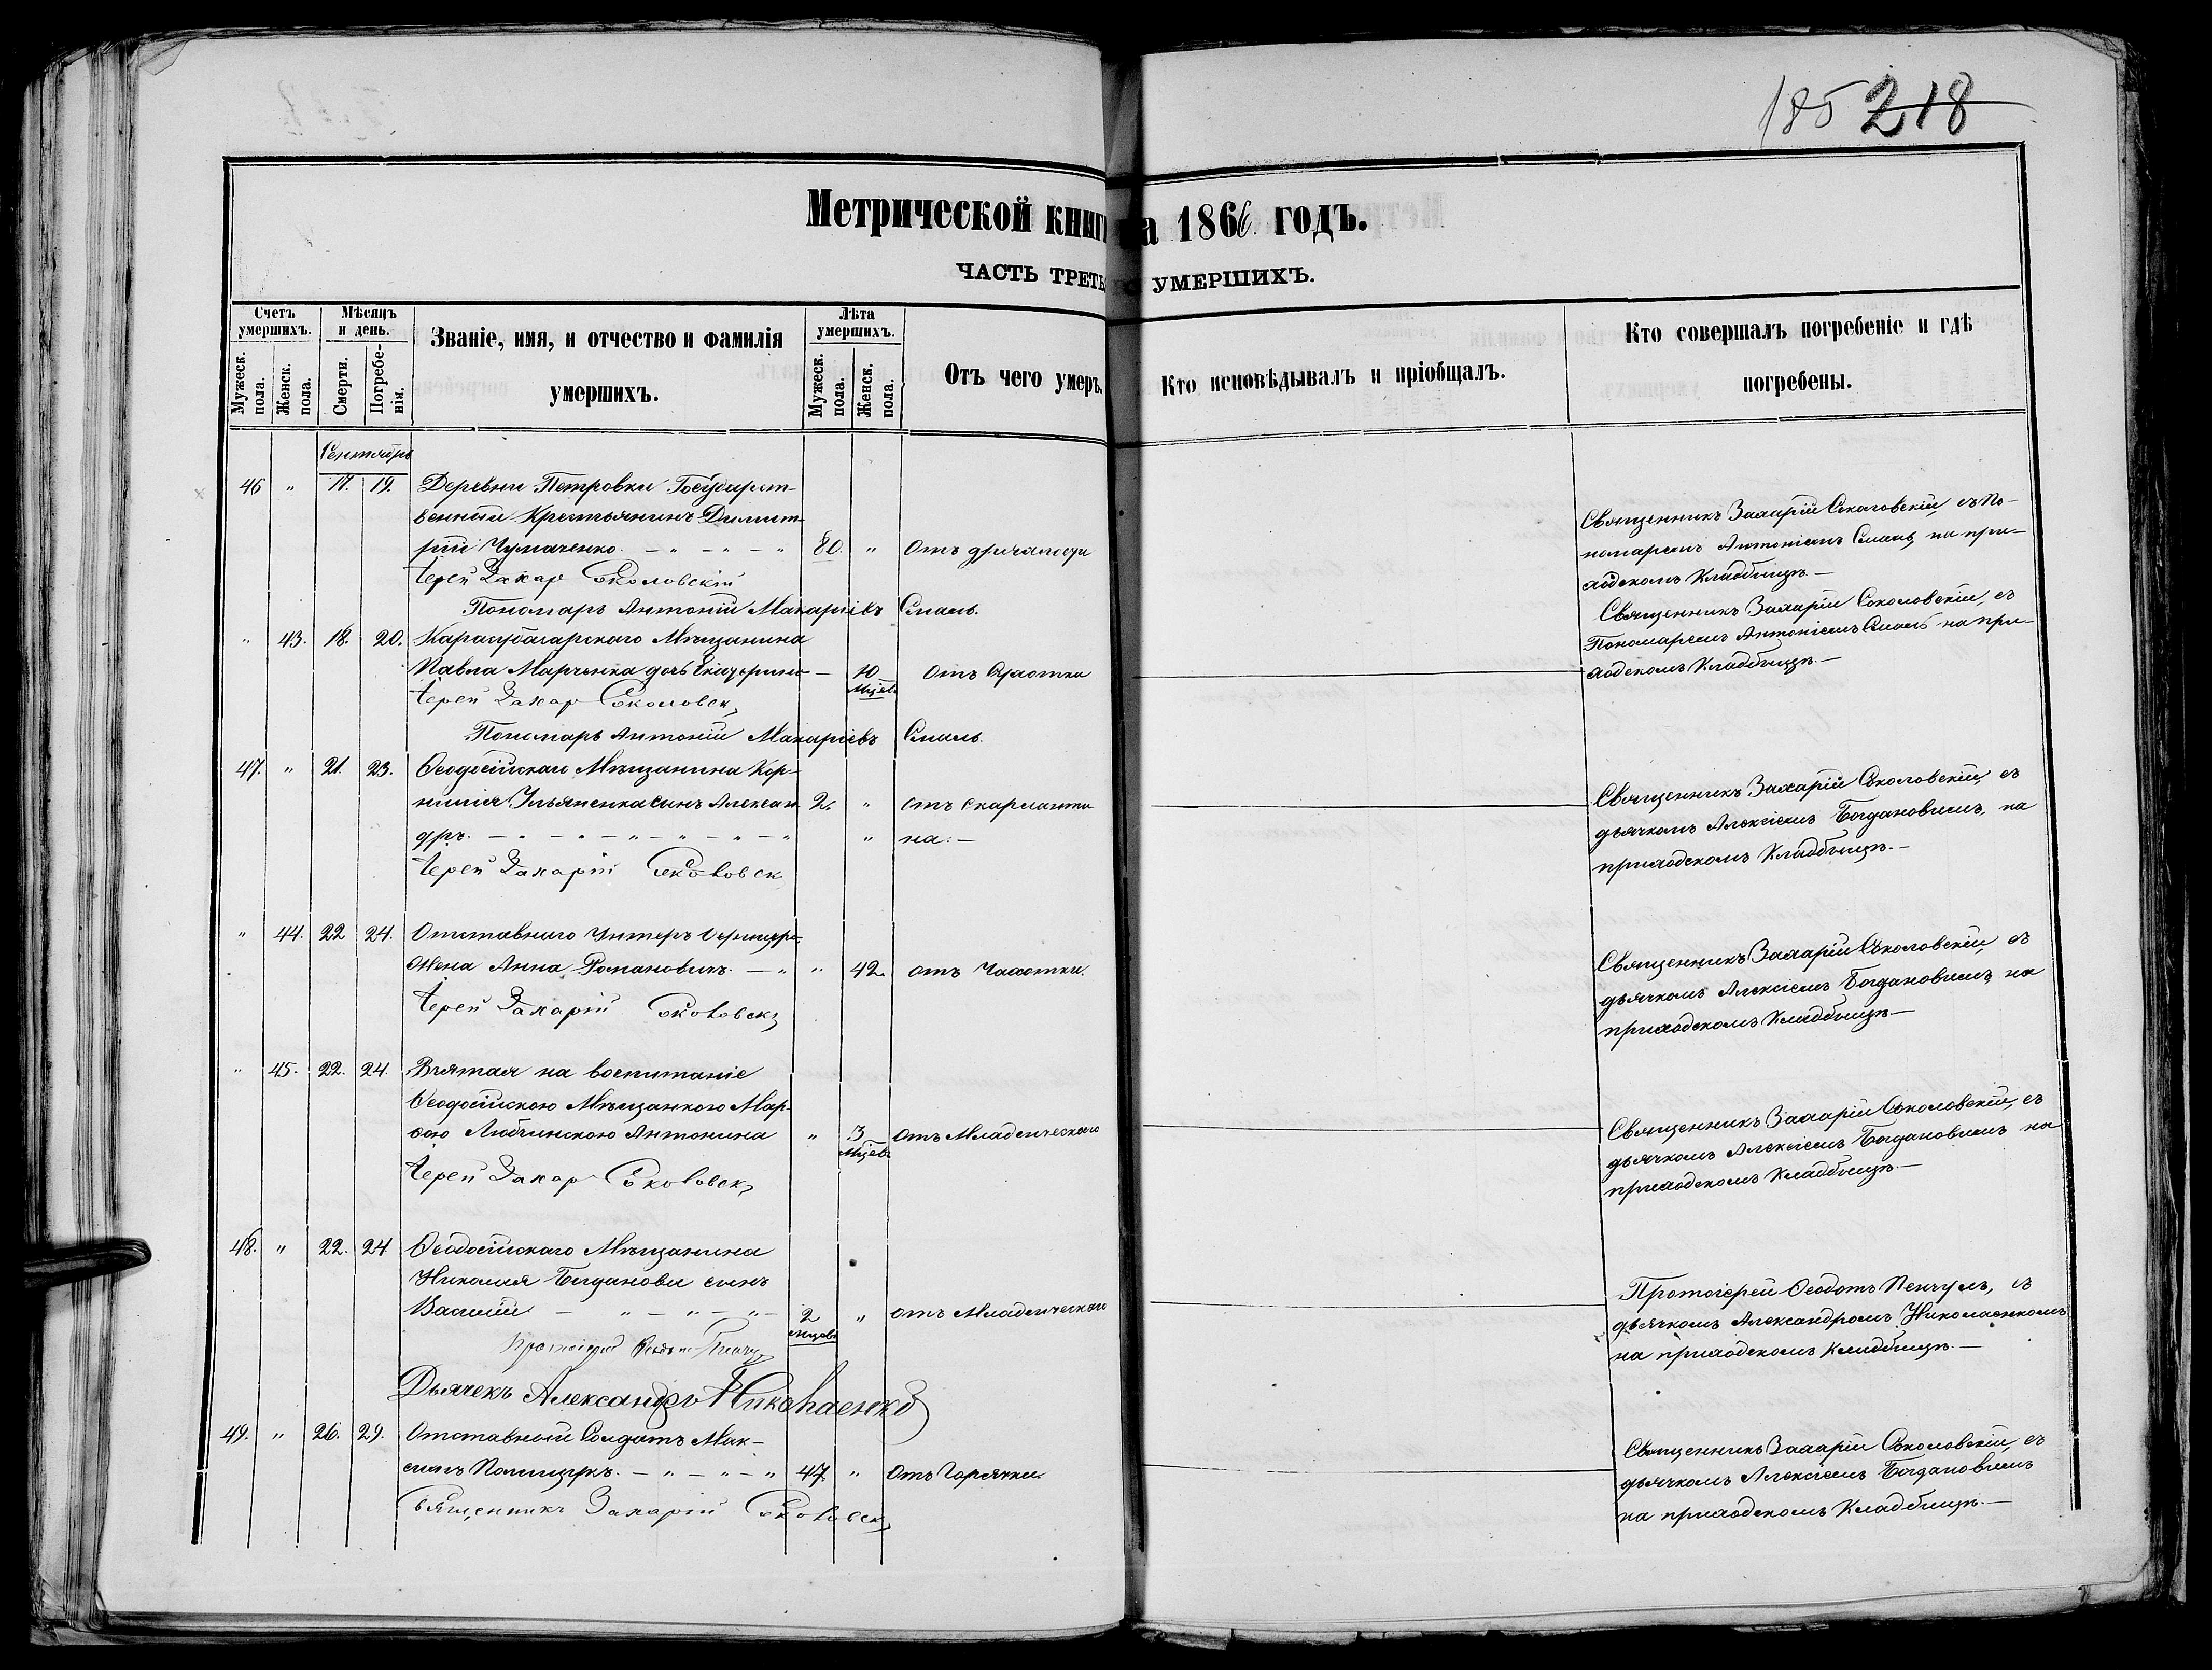 185 218
Метрической книг а 1866 годъ.
ЧАСТЬ ТРЕТЬ УМЕРШИХЪ.
Счетъ умершихъ.
Мужеск. пола.
Женск. пола.
Мѣсяцъ и день.
Смерти.
Погребенія.
Званіе, имя, и отчество и фамилія
умершихъ.
Лѣта умершихъ.
Мужеск. пола.
Женск. пола.
Отъ чего умеръ.
Кто исповѣдывалъ и пріобщалъ.
Кто совершалъ погребеніе и гдѣ
погребены.
Сентябрь
46 " 17. 19. Деревни Петровки Государст-
венный Крестьянинъ Димит-
рій Чумаченко. 80. " Отъ
Іерей Захар Соколовскій
Пономарь Антоній Макаріевъ Смаль.
Священникъ Захарій Соколовскій, съ По-
номаремъ Антоніемъ Смаль, на при-
ходскомъ Кладбищѣ.
" 43. 18. 20. Карасубазарскаго Мѣщанина
Павла Марченка дочь Екатерина 10 мцев Отъ
Іерей Захар Соколовск
Пономарь Антоній Макаріевъ Смаль.
Священникъ Захарій Соколовскій, съ
Пономаремъ Антоніемъ Смаль на при-
ходскомъ Кладбищѣ.
47. " 21. 23. Ѳеодосійскаго Мѣщанина Кор-
нилія Ульяненка сынъ Алексан- 2. " отъ скарлати
дръ. " на.
Іерей Захарій Соколовск
Священникъ Захарій Соколовскій, съ
дьячкомъ Алексіемъ Богдановымъ, на
приходскомъ Кладбищѣ.
" 44. 22 24. Отставнаго Унтеръ Офицера
жена Анна Романовичъ. " 42. отъ Чахотки.
Іерей Захарій Соколовск
Священникъ Захарій Соколовскій, съ
дьячкомъ Алексіемъ Богдановымъ, на
приходскомъ Кладбищѣ
" 45. 22. 24. Взятая на воспитаніе
Ѳеодосійскою Мѣщанкою Мар-
ѳою Любчинскою Антонина " 3 мцев отъ Младенческаго
Іерей Захар Соколовск
Священникъ Захарій Соколовскій, съ
дьячкомъ Алексіемъ Богдановымъ на
приходскомъ Кладбищѣ.
48. " 22. 24. Ѳеодосійскаго Мѣщанина
Николая Богданова сынъ
Василій 2 мцев " отъ Младенческаго
Протоіерей Ѳеодотъ Пенчул
Дьячекъ Александръ Николаенко
Протоіерей Ѳеодотъ Пенчулъ, съ
дьячкомъ Александромъ Николаенкомъ
на приходскомъ Кладбищѣ.
49. " 26. 29. Отставный Солдатъ Мак-
симъ Полищукъ. 47. " Отъ Горячки
Священникъ Захарій Соколовск
Священникъ Захарій Соколовскій, съ
дьячкомъ Алексіемъ Богдановымъ
на приходскомъ Кладбищѣ.